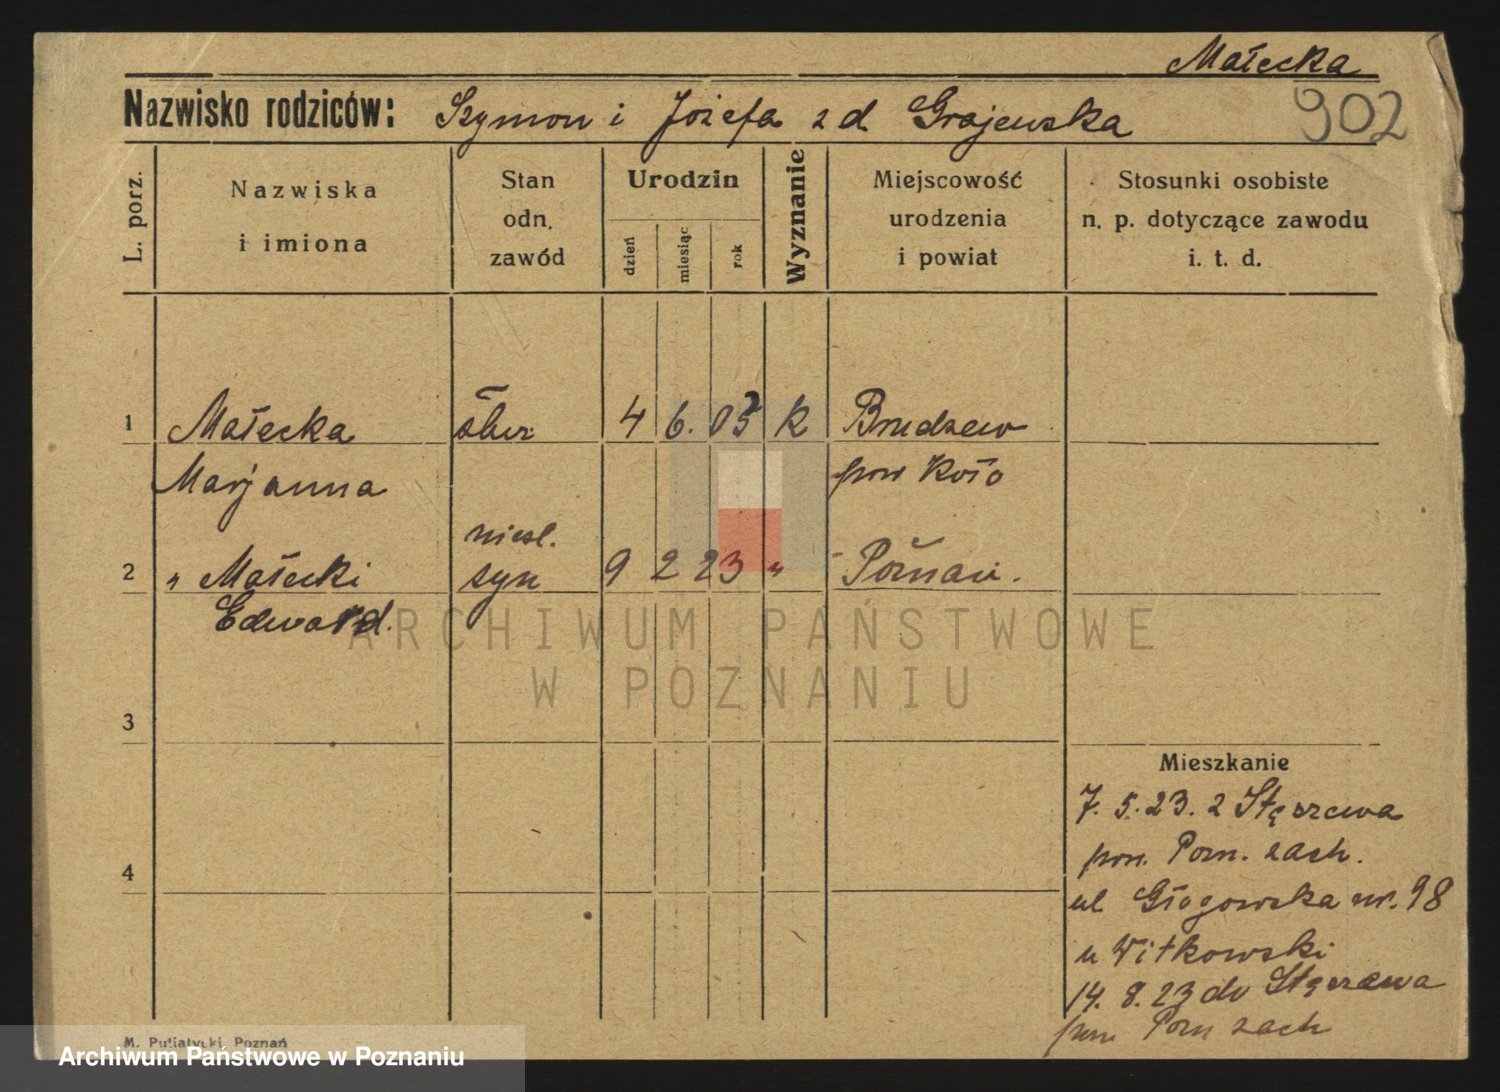 Małecka
902
Nazwisko rodziców: Szymon i Józefa z d Grajewska
L. porz.
Nazwiska
i imiona
Stan
odn.
zawód
Urodzin
dzień
miesiąc
rok
Wyznanie
Miejscowość
urodzenia
i powiat
Stosunki osobiste
n. p. dotyczące zawodu
i. t. d.
1 Małecka 4 6. 03 K Brudzew
Marjanna pow Koło
niesl.
2 " Małecki syn 9 2 23 " Poznań.
Edward.
ARCHIWUM PAŃSTWOWE
W POZNANIU
3
Mieszkanie
7. 5. 23. z Stęszewa
pow. Pozn. zach.
4
ul Głogowska nr. 98
u Witkowski
14. 8. 23 do Stęszewa
pow Pozn zach
M. Putiatycki, Poznań
Archiwum Państwowe w Poznaniu